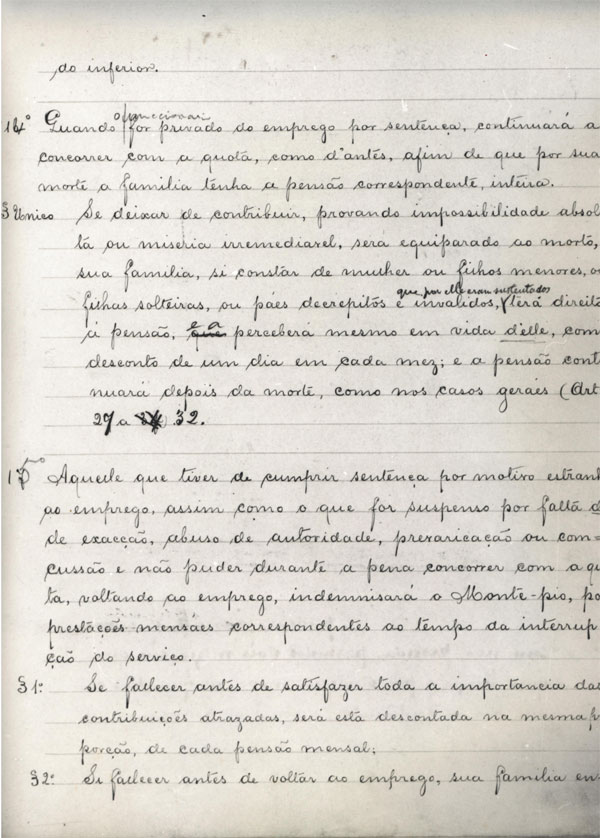 do inferior.
o funccionario
14º Quando for privado do emprego por sentença, continuará a
concorrer com a quota, como d'antes, afim de que por sua
morte a familia tenha a pensão correspondente, inteira.
§ Unico Se deixar de contribuir, provando impossibilidade absolu
ta ou miseria irremediavel, sera equiparado ao morto,
sua familia, si constar de mulher ou filhos menores, ou
que por elle eram sustentados
filhas solteiras, ou páes decrepitos e invalidos, terá direito
á pensão, e a perceberá mesmo em vida d'elle, com
desconto de um dia em cada mez; e a pensão conti
nuará depois da morte, como nos casos geraes (Art
27 a 32.
15º Aquelle que tiver de cumprir sentença por motivo estranh
ao emprego, assim como o que for suspenso por falta d
de exacção, abuso de autoridade, prevaricação ou con=
cussão e não puder durante a pena concorrer com a quo
ta, voltando ao emprego, indemnisará o Monte-pio, po
prestações mensaes correspondentes ao tempo da interrup
ção do serviço.
§ 1º Se fallecer antes de satisfazer toda a importancia das
contribuições atrazadas, será está descontada na mesma p
porção, de cada pensão mensal;
§ 2º Si fallecer antes de voltar ao emprego, sua familia en-